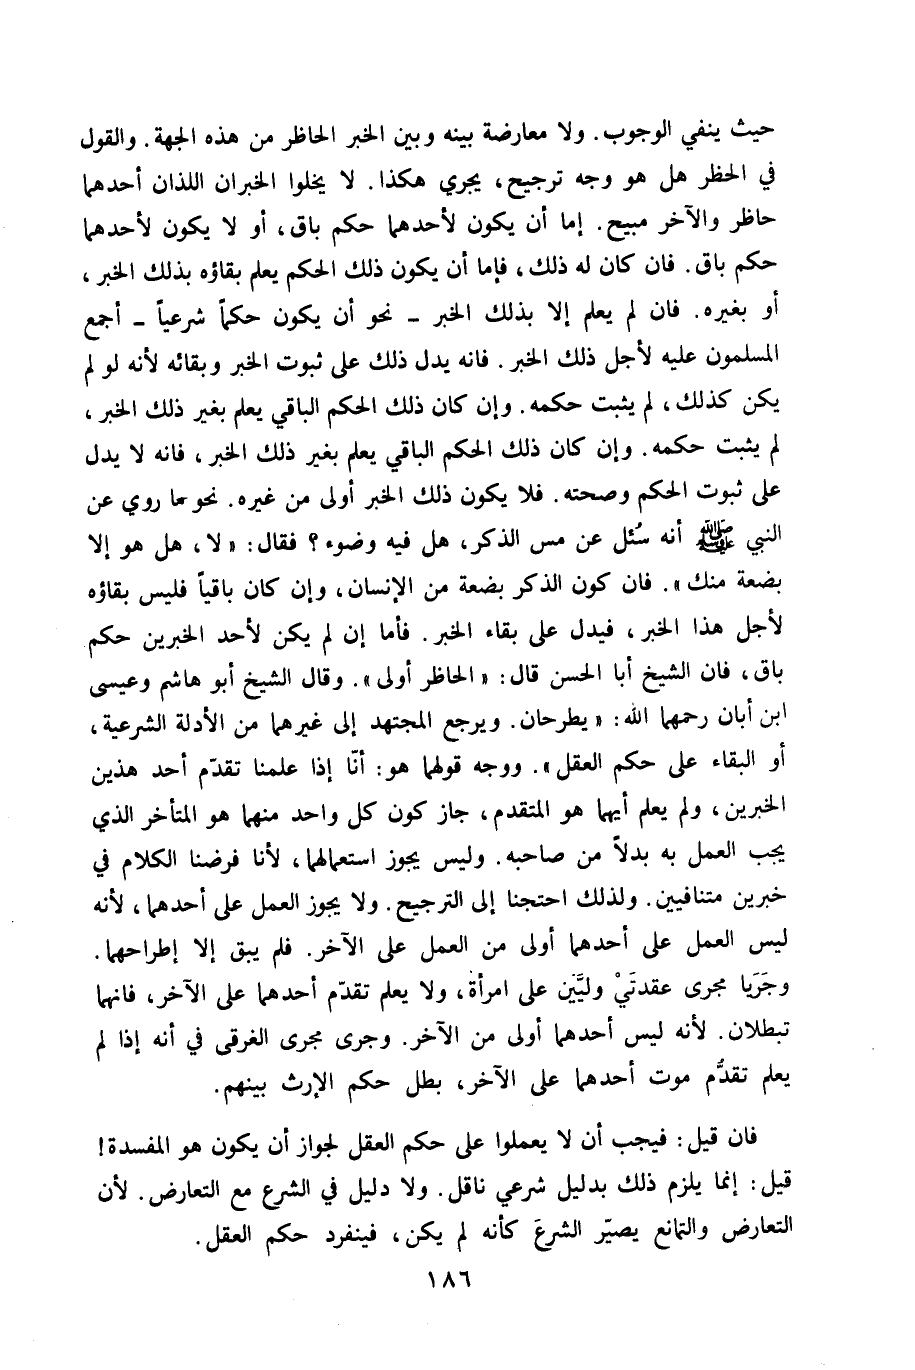 حيث ينفي الوجوب. ولا معارضة بينه وبين الخبر الحاظر من هذه الجهة. والقول
في الحظر هل هو وجه ترجيح، يجري هكذا. لا يخلوا الخبران اللذان أحدهما
حاظر والآخر مبيح. إما أن يكون لأحدهما حكم باق، أو لا يكون لأحدهما
حكم باق. فان كان له ذلك، فإما أن يكون ذلك الحكم يعلم بقاؤه بذلك الخبر،
أو بغيره. فان لم يعلم إلا بذلك الخبر - نحو أن يكون حكماً شرعياً - أجمع
المسلمون عليه لأجل ذلك الخبر. فانه يدل ذلك على ثبوت الخبر وبقائه لأنه لو لم
يكن كذلك، لم يثبت حكمه. وإن كان ذلك الحكم الباقي يعلم بغير ذلك الخبر،
لم يثبت حكمه. وإن كان ذلك الحكم الباقي يعلم بغير ذلك الخبر، فانه لا يدل
على ثبوت الحكم وصحته. فلا يكون ذلك الخبر أولى من غيره. نحو ما روي عن
النبي ﷺ أنه سُئل عن مس الذكر، هل فيه وضوء؟ فقال: «لا، هل هو إلا
بضعة منك». فان كون الذكر بضعة من الإنسان، وإن كان باقياً فليس بقاؤه
لأجل هذا الخبر، فيدل على بقاء الخبر. فأما إن لم يكن لأحد الخبرين حكم
باق، فان الشيخ أبا الحسن قال: «الحاظر أولى». وقال الشيخ أبو هاشم وعيسى
ابن أبان رحمهما الله: «يطرحان. ويرجع المجتهد إلى غيرهما من الأدلة الشرعية،
أو البقاء على حكم العقل». ووجه قولهما هو: أنّا إذا علمنا تقدّم أحد هذين
الخبرين، ولم يعلم أيهما هو المتقدم، جاز كون كل واحد منهما هو المتأخر الذي
يجب العمل به بدلاً من صاحبه. وليس يجوز استعمالهما، لأنا فرضنا الكلام في
خبرين متنافيين. ولذلك احتجنا إلى الترجيح. ولا يجوز العمل على أحدهما، لأنه
ليس العمل على أحدهما أولى من العمل على الآخر. فلم يبق إلا إطراحهما.
وجَرَيا مجرى عقدتَيْ وليَّين على امرأة، ولا يعلم تقدّم أحدهما على الآخر، فانهما
تبطلان. لأنه ليس أحدهما أولى من الآخر. وجرى مجرى الغرقى في أنه إذا لم
يعلم تقدُّم موت أحدهما على الآخر، بطل حكم الإرث بينهم.
فان قيل: فيجب أن لا يعملوا على حكم العقل لجواز أن يكون هو المفسدة!
قيل: إنما يلزم ذلك بدليل شرعي ناقل. ولا دليل في الشرع مع التعارض. لأن
التعارض والتمانع يصيّر الشرعَ كأنه لم يكن، فينفرد حكم العقل.
١٨٦